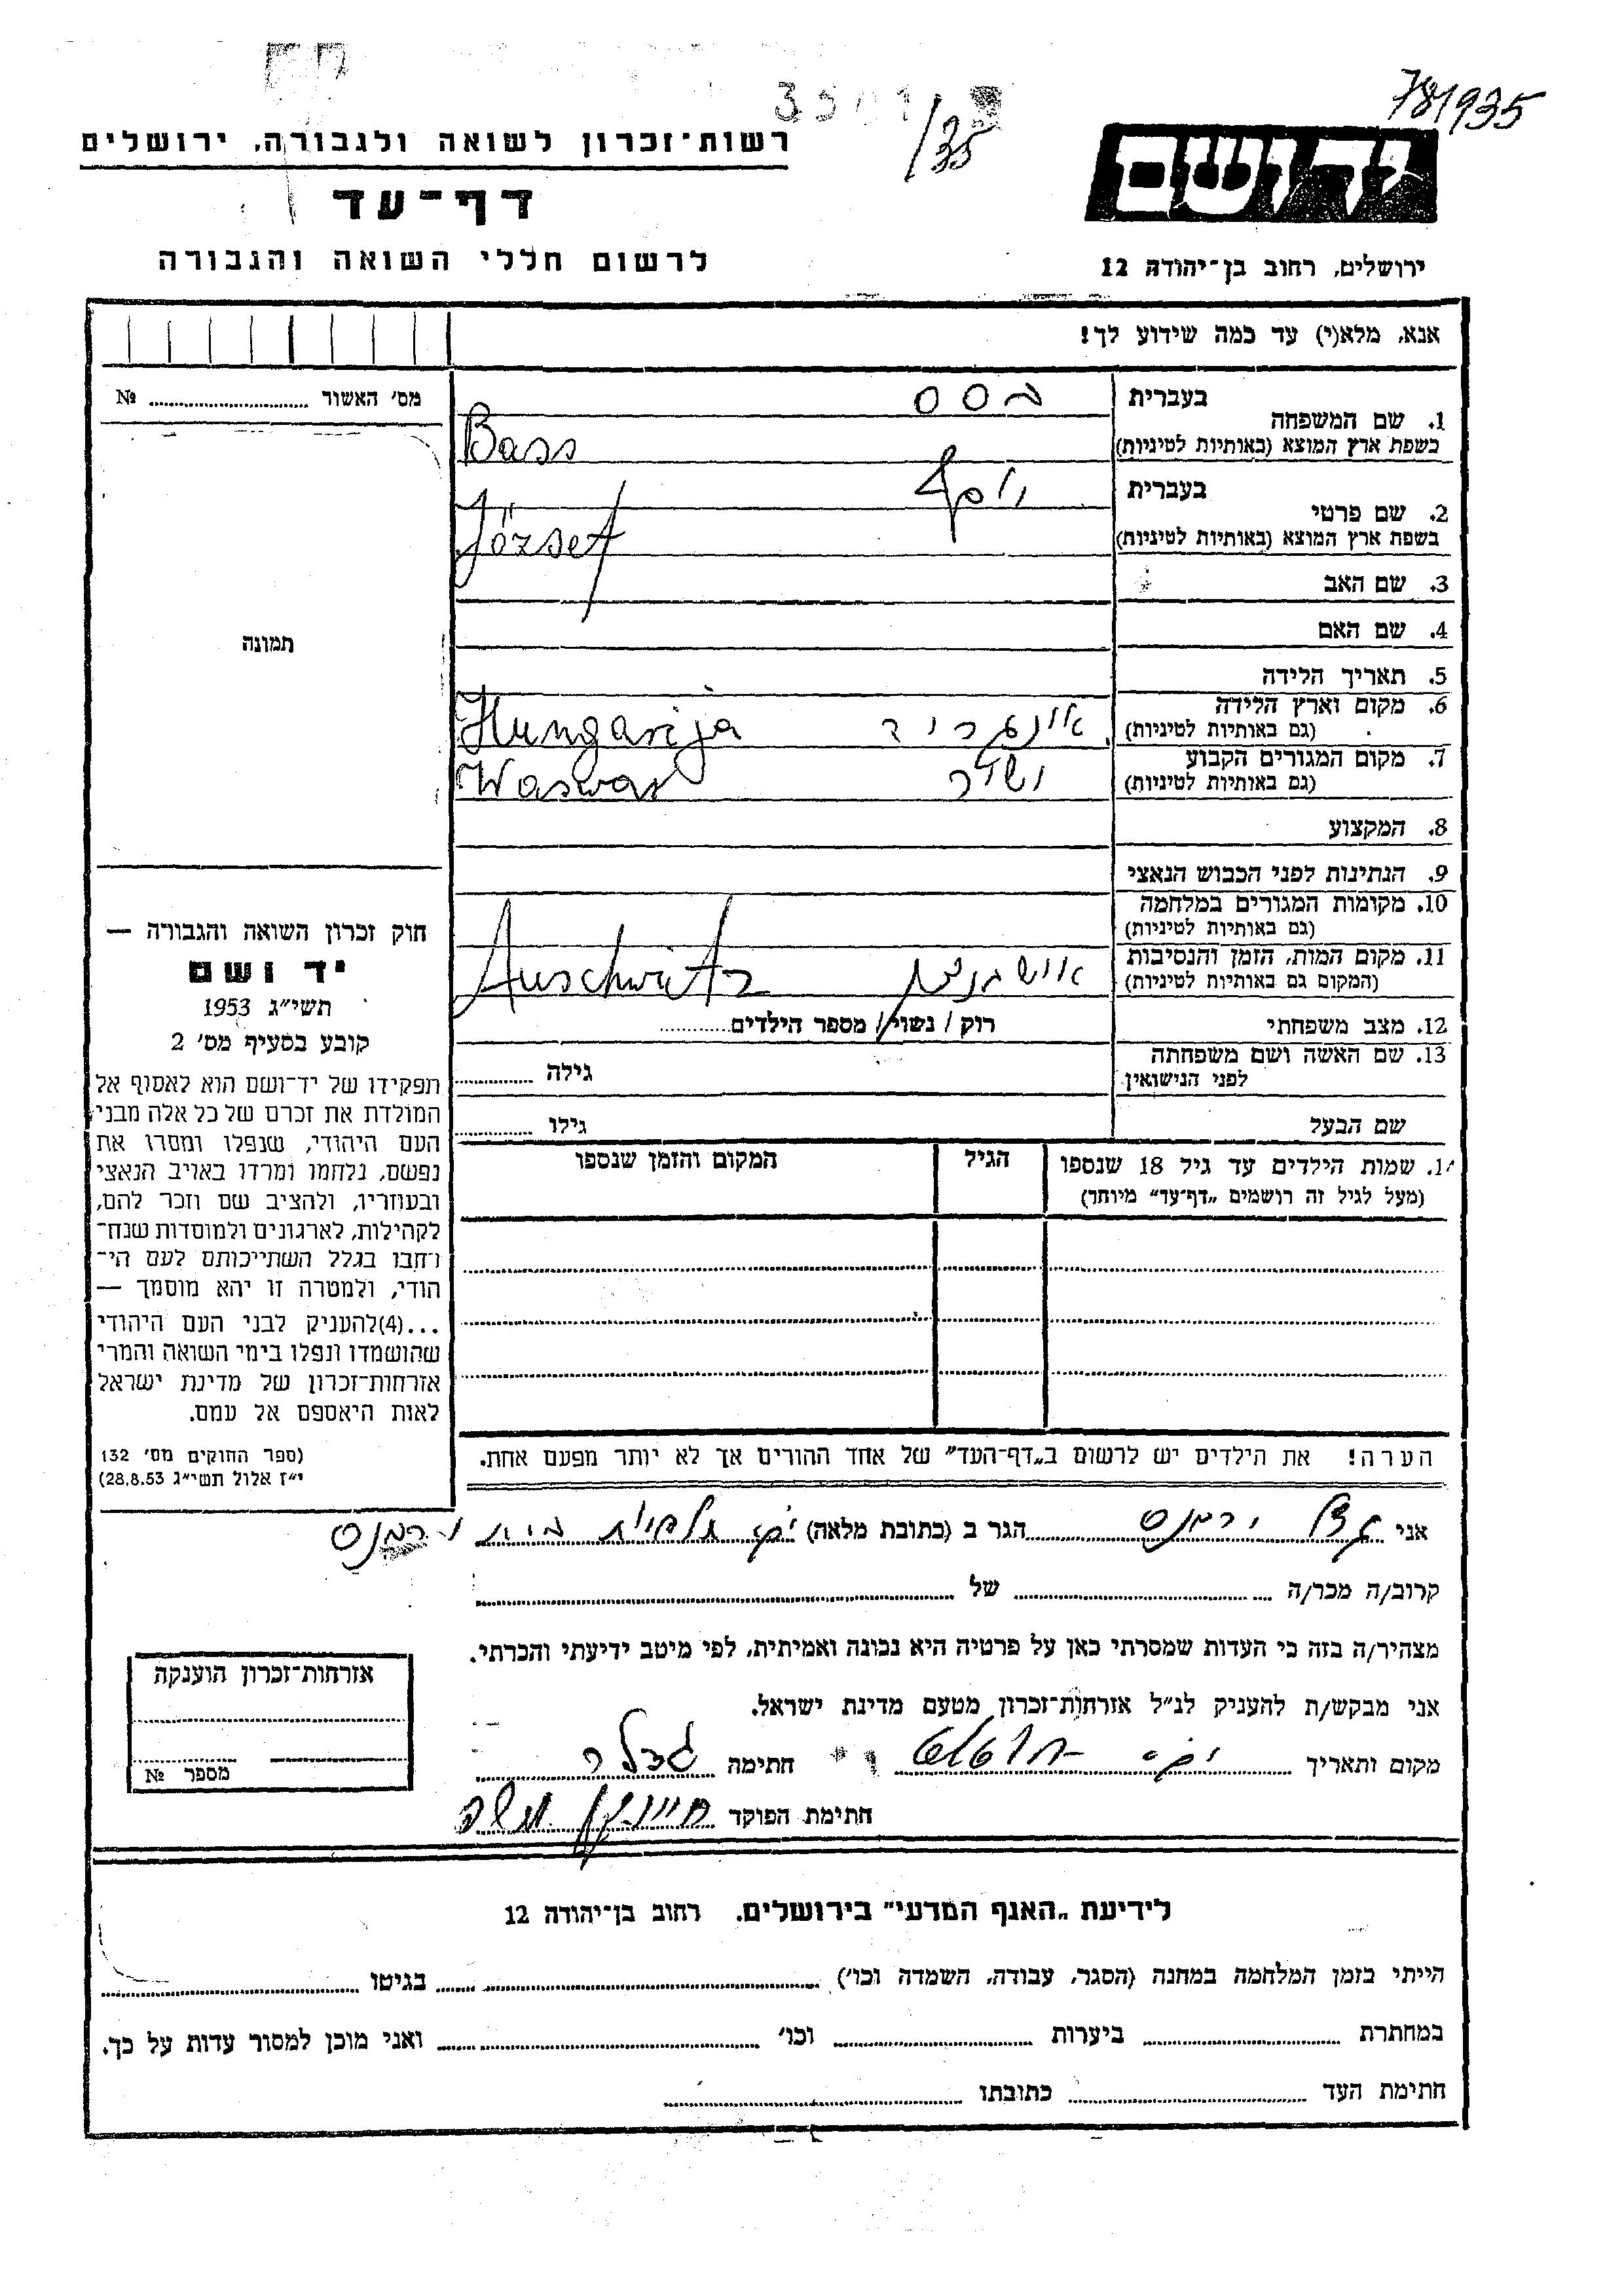 781935
35
יד ושם
רשות־זכרון לשואה ולגבורה, ירושלים
דף־עד
לרשום חללי השואה והגבורה
ירושלים, רחוב בן־יהודה 12
אנא, מלא(י) עד כמה שידוע לך!
מס׳ האשור № 
תמונה
בעברית בסס
1. שם המשפחה
בשפת ארץ המוצא (באותיות לטיניות) Bass
בעברית יוסף
2. שם פרטי
בשפת ארץ המוצא (באותיות לטיניות) József
3. שם האב
4. שם האם
5. תאריך הלידה
6. מקום וארץ הלידה
(גם באותיות לטיניות) Hungarija
7. מקום המגורים הקבוע
(גם באותיות לטיניות) Waswar
8. המקצוע
9. הנתינות לפני הכבוש הנאצי
10. מקומות המגורים במלחמה
(גם באותיות לטיניות)
11. מקום המות, הזמן והנסיבות
(המקום גם באותיות לטיניות) Auschwitz
12. מצב משפחתי רוק / נשוי / מספר הילדים
13. שם האשה ושם משפחתה
לפני הנישואין גילה
שם הבעל גילו
שמות הילדים עד גיל 18 שנספו הגיל המקום והזמן שנספו
(מעל לגיל זה רושמים „דף־עד״ מיוחד)
הערה! את הילדים יש לרשום ב„דף־העד״ של אחד ההורים אך לא יותר מפעם אחת.
חוק זכרון השואה והגבורה —
יד ושם
תשי״ג 1953
קובע בסעיף מס׳ 2
תפקידו של יד־ושם הוא לאסוף אל
המולדת את זכרם של כל אלה מבני
העם היהודי, שנפלו ומסרו את
נפשם, נלחמו ומרדו באויב הנאצי
ובעוזריו, ולהציב שם וזכר להם,
לקהילות, לארגונים ולמוסדות שנח־
רבו בגלל השתייכותם לעם הי־
הודי, ולמטרה זו יהא מוסמך —
...(4)להעניק לבני העם היהודי
שהושמדו ונפלו בימי השואה והמרי
אזרחות־זכרון של מדינת ישראל
לאות היאספם אל עמם.
(ספר החוקים מס׳ 132
י״ז אלול תשי״ג 28.8.53)
אני הגר ב (כתובת מלאה)
קרוב/ה מכר/ה של
מצהיר/ה בזה כי העדות שמסרתי כאן על פרטיה היא נכונה ואמיתית, לפי מיטב ידיעתי והכרתי.
אני מבקש/ת להעניק לנ״ל אזרחות־זכרון מטעם מדינת ישראל.
מקום ותאריך חתימה
חתימת הפוקד
אזרחות־זכרון הוענקה
מספר №
לידיעת „האגף המדעי״ בירושלים. רחוב בן־יהודה 12
הייתי בזמן המלחמה במחנה (הסגר, עבודה, השמדה וכו׳) בגיטו
במחתרת ביערות וכו׳ ואני מוכן למסור עדות על כך.
חתימת העד כתובתו